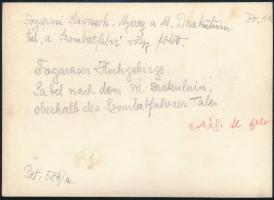 Fogarasi havasok. Nyereg a M. Drakuluin
túl, a Szombatfalvi völgy fölött.
Fogaraser Hochgebirge.
Sattel nach dem M. Drakuluin,
oberhalb des Szombatfalvaer Tales
Prt. 584/a.